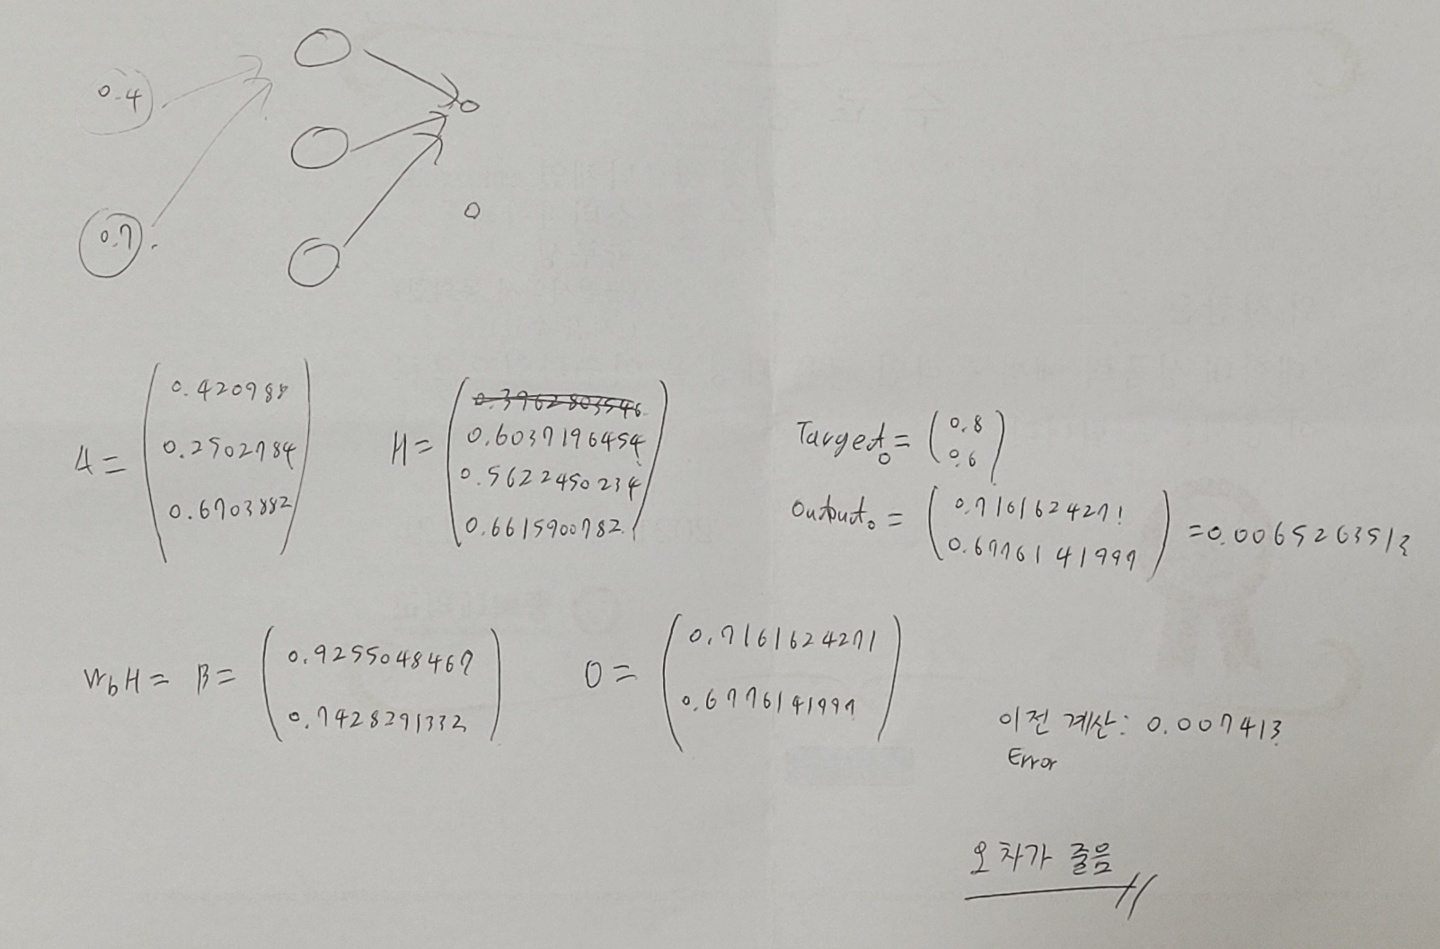 0.4
0.7
A = (0.420988
0.2502784
0.6703882)
H = (0.3962803546
0.6037196454
0.5622450234
0.6615900782)
Target₀ = (0.8
0.6)
Output₀ = (0.7161624271
0.6776141997) = 0.0065263513
W_b H = B = (0.9255048467
0.7428291332)
O = (0.7161624271
0.6776141997)
이전 계산: 0.007413
Error
오차가 줄음